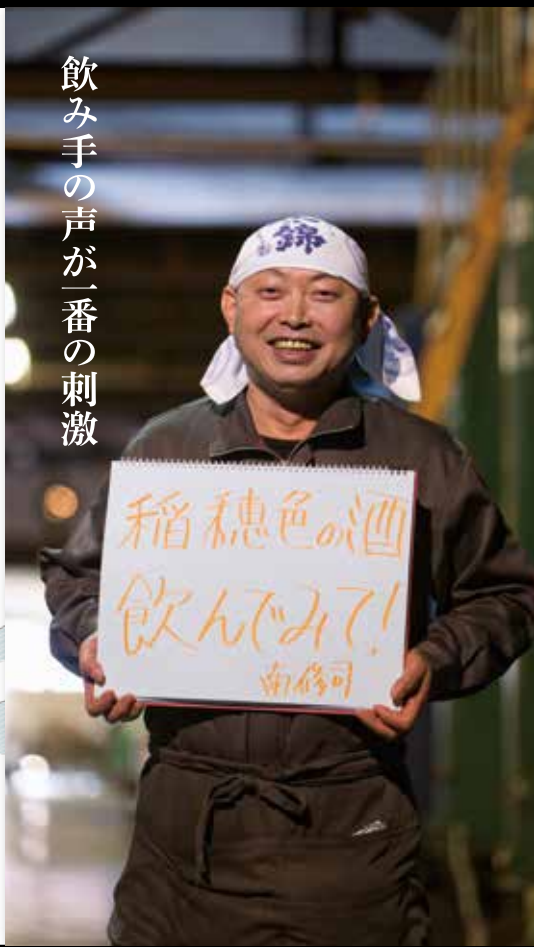 飲み手の声が一番の刺激
錦
稲穂色の酒
飲んでみて!
南修司